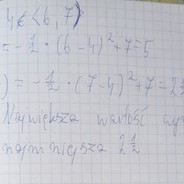 4 ∉ <6, 7)
= -½ · (6-4)²+7=5
) = -½ · (7-4)²+7=2½
Największa wartość wy
najmniejsza 2½